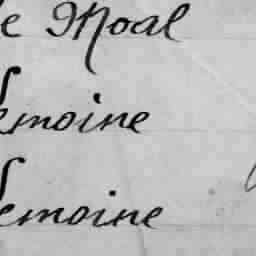 le Moal
Lemoine
Lemoine